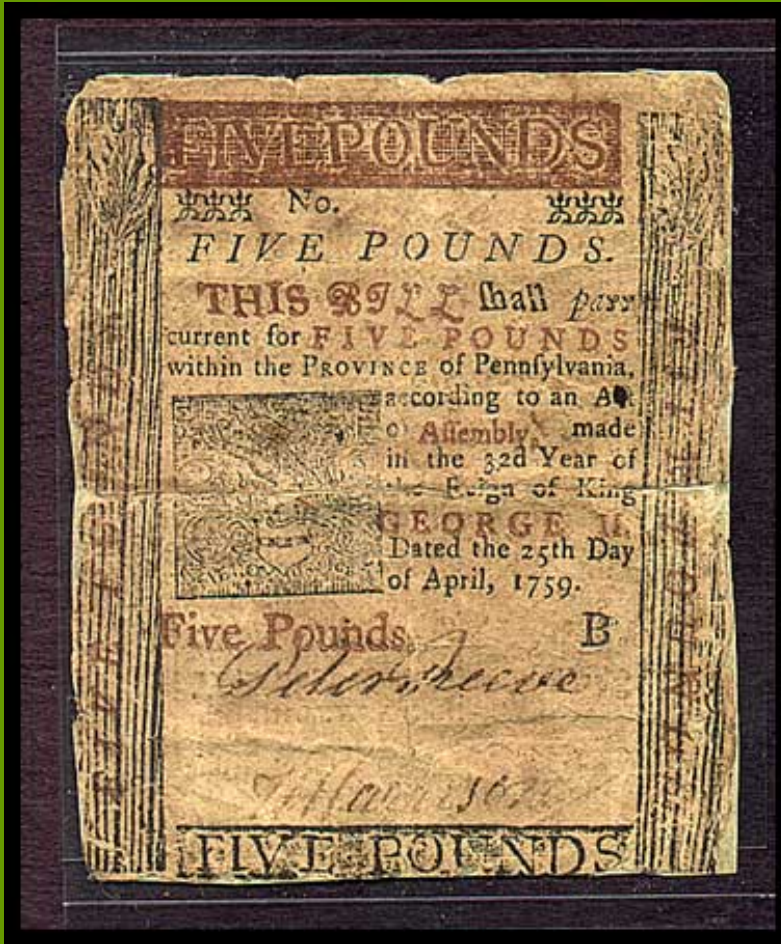 FIVE POUNDS
No.
FIVE POUNDS.
THIS BILL ſhall paſſ
current for FIVE POUNDS
within the PROVINCE of Pennſylvania,
according to an Act
of Aſſembly, made
in the 32d Year of
the Reign of King
GEORGE II.
Dated the 25th Day
of April, 1759.
Five Pounds. B
Peter Reeve
Harrison
FIVE POUNDS